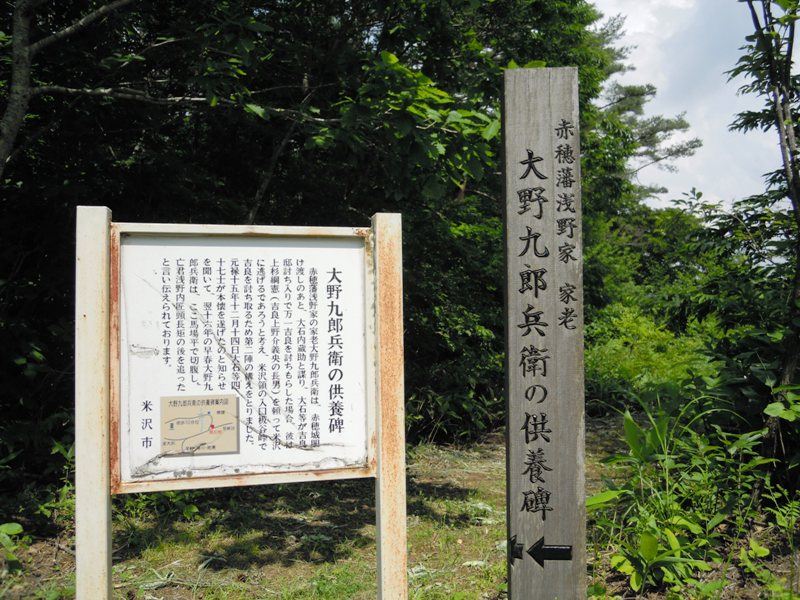 大野九郎兵衛の供養碑
赤穂藩浅野家の家老大野九郎兵衛は、赤穂城明
け渡しのあと、大石内蔵助と謀り、大石等が吉良
邸討ち入りで万一吉良を討ちもらした場合、彼は
上杉綱憲(吉良上野介義央の長男)を頼って米沢
に逃げるであろうと考え、米沢領の入口板谷峠で
吉良を討ち取るため第二陣の構えをとりました。
元禄十五年十二月十四日大石等四
十七士が本懐を遂げたのと知らせ
を聞いて、翌十六年の早春大野九
郎兵衛は、ここ馬場平で切腹し、
亡君浅野内匠頭長矩の後を追った
と言い伝えられております。
米沢市
大野九郎兵衛の供養碑案内図
赤穂藩浅野家 家老
大野九郎兵衛の供養碑